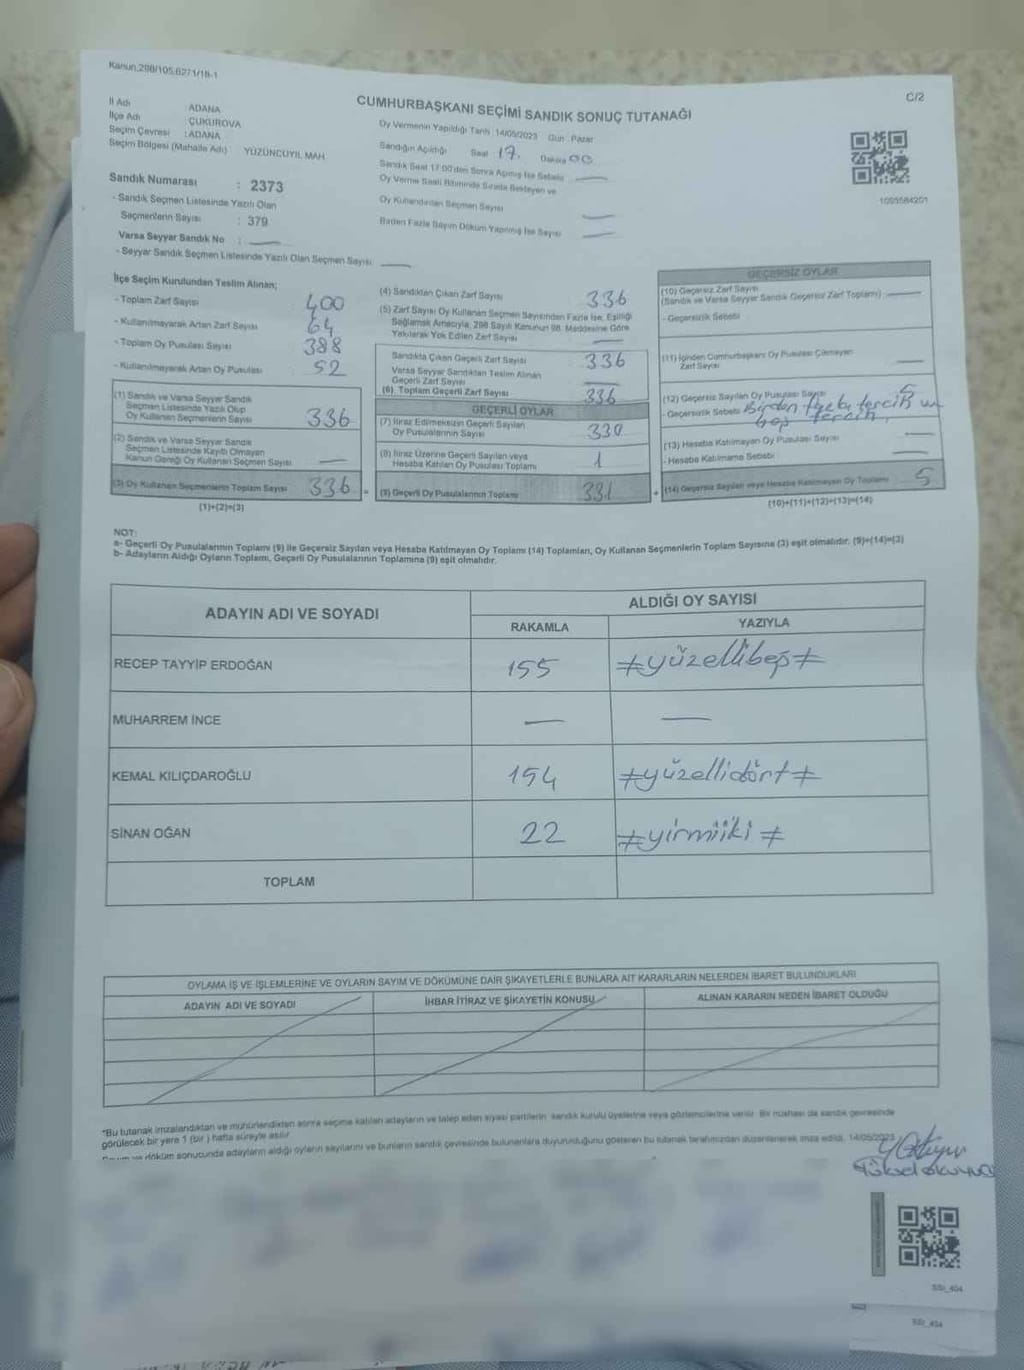 Kanun.298/105,6271/18-1
C/2
CUMHURBAŞKANI SEÇİMİ SANDIK SONUÇ TUTANAĞI
İl Adı : ADANA
İlçe Adı : ÇUKUROVA
Seçim Çevresi : ADANA
Seçim Bölgesi (Mahalle Adı) YÜZÜNCÜYIL MAH.
Oy Vermenin Yapıldığı Tarih :14/05/2023 Gün : Pazar
Sandığın Açıldığı Saat 17. Dakika 00
Sandık Saat 17:00'den Sonra Açılmış İse Sebebi
Oy Verme Saati Bitiminde Sırada Bekleyen ve
Oy Kullandırılan Seçmen Sayısı
Birden Fazla Sayım Döküm Yapılmış İse Sayısı
Sandık Numarası : 2373
- Sandık Seçmen Listesinde Yazılı Olan
Seçmenlerin Sayısı : 379
Varsa Seyyar Sandık No :
- Seyyar Sandık Seçmen Listesinde Yazılı Olan Seçmen Sayısı:
İlçe Seçim Kurulundan Teslim Alınan;
- Toplam Zarf Sayısı 400
- Kullanılmayarak Artan Zarf Sayısı 64
- Toplam Oy Pusulası Sayısı 388
- Kullanılmayarak Artan Oy Pusulası 52
(1) Sandık ve Varsa Seyyar Sandık
Seçmen Listesinde Yazılı Olup
Oy Kullanan Seçmenlerin Sayısı 336
(2) Sandık ve Varsa Seyyar Sandık
Seçmen Listesinde Kayıtlı Olmayan
Kanun Gereği Oy Kullanan Seçmen Sayısı
(3) Oy Kullanan Seçmenlerin Toplam Sayısı 336 =
(1)+(2)=(3)
(4) Sandıktan Çıkan Zarf Sayısı 336
(5) Zarf Sayısı Oy Kullanan Seçmen Sayısından Fazla İse, Eşitliği
Sağlamak Amacıyla, 298 Sayılı Kanunun 98. Maddesine Göre
Yakılarak Yok Edilen Zarf Sayısı
Sandıkta Çıkan Geçerli Zarf Sayısı 336
Varsa Seyyar Sandıktan Teslim Alınan
Geçerli Zarf Sayısı
(6) Toplam Geçerli Zarf Sayısı 336
GEÇERLİ OYLAR
(7) İtiraz Edilmeksizin Geçerli Sayılan
Oy Pusulalarının Sayısı 330
(8) İtiraz Üzerine Geçerli Sayılan veya
Hesaba Katılan Oy Pusulası Toplamı 1
(9) Geçerli Oy Pusulalarının Toplamı 331 +
GEÇERSİZ OYLAR
(10) Geçersiz Zarf Sayısı
(Sandık ve Varsa Seyyar Sandık Geçersiz Zarf Toplamı)
- Geçersizlik Sebebi
(11) İçinden Cumhurbaşkanı Oy Pusulası Çıkmayan
Zarf Sayısı
(12) Geçersiz Sayılan Oy Pusulası Sayısı 5
- Geçersizlik Sebebi Birden fazla tercih
boş tercih
(13) Hesaba Katılmayan Oy Pusulası Sayısı
- Hesaba Katılmama Sebebi :
(14) Geçersiz Sayılan veya Hesaba Katılmayan Oy Toplamı 5
(10)+(11)+(12)+(13)=(14)
NOT:
a- Geçerli Oy Pusulalarının Toplamı (9) ile Geçersiz Sayılan veya Hesaba Katılmayan Oy Toplamı (14) Toplamları, Oy Kullanan Seçmenlerin Toplam Sayısına (3) eşit olmalıdır. (9)+(14)=(3)
b- Adayların Aldığı Oyların Toplamı, Geçerli Oy Pusulalarının Toplamına (9) eşit olmalıdır.
ADAYIN ADI VE SOYADI ALDIĞI OY SAYISI
RAKAMLA YAZIYLA
RECEP TAYYİP ERDOĞAN 155 #yüzellibeş#
MUHARREM İNCE
KEMAL KILIÇDAROĞLU 154 #yüzellidört#
SİNAN OĞAN 22 #yirmiiki#
TOPLAM
OYLAMA İŞ VE İŞLEMLERİNE VE OYLARIN SAYIM VE DÖKÜMÜNE DAİR ŞİKAYETLERLE BUNLARA AİT KARARLARIN NELERDEN İBARET BULUNDUKLARI
ADAYIN ADI VE SOYADI İHBAR İTİRAZ VE ŞİKAYETİN KONUSU ALINAN KARARIN NEDEN İBARET OLDUĞU
*Bu tutanak imzalandıktan ve mühürlendikten sonra seçime katılan adayların ve talep eden siyasi partilerin sandık kurulu üyelerine veya gözlemcilerine verilir. Bir nüshası da sandık çevresinde
görülecek bir yere 1 (bir) hafta süreyle asılır.
ve döküm sonucunda adayların aldığı oyların sayılarını ve bunların sandık çevresinde bulunanlara duyurulduğunu gösteren bu tutanak tarafımızdan düzenlenerek imza edildi. 14/05/2023
SSI_404
SSI_404